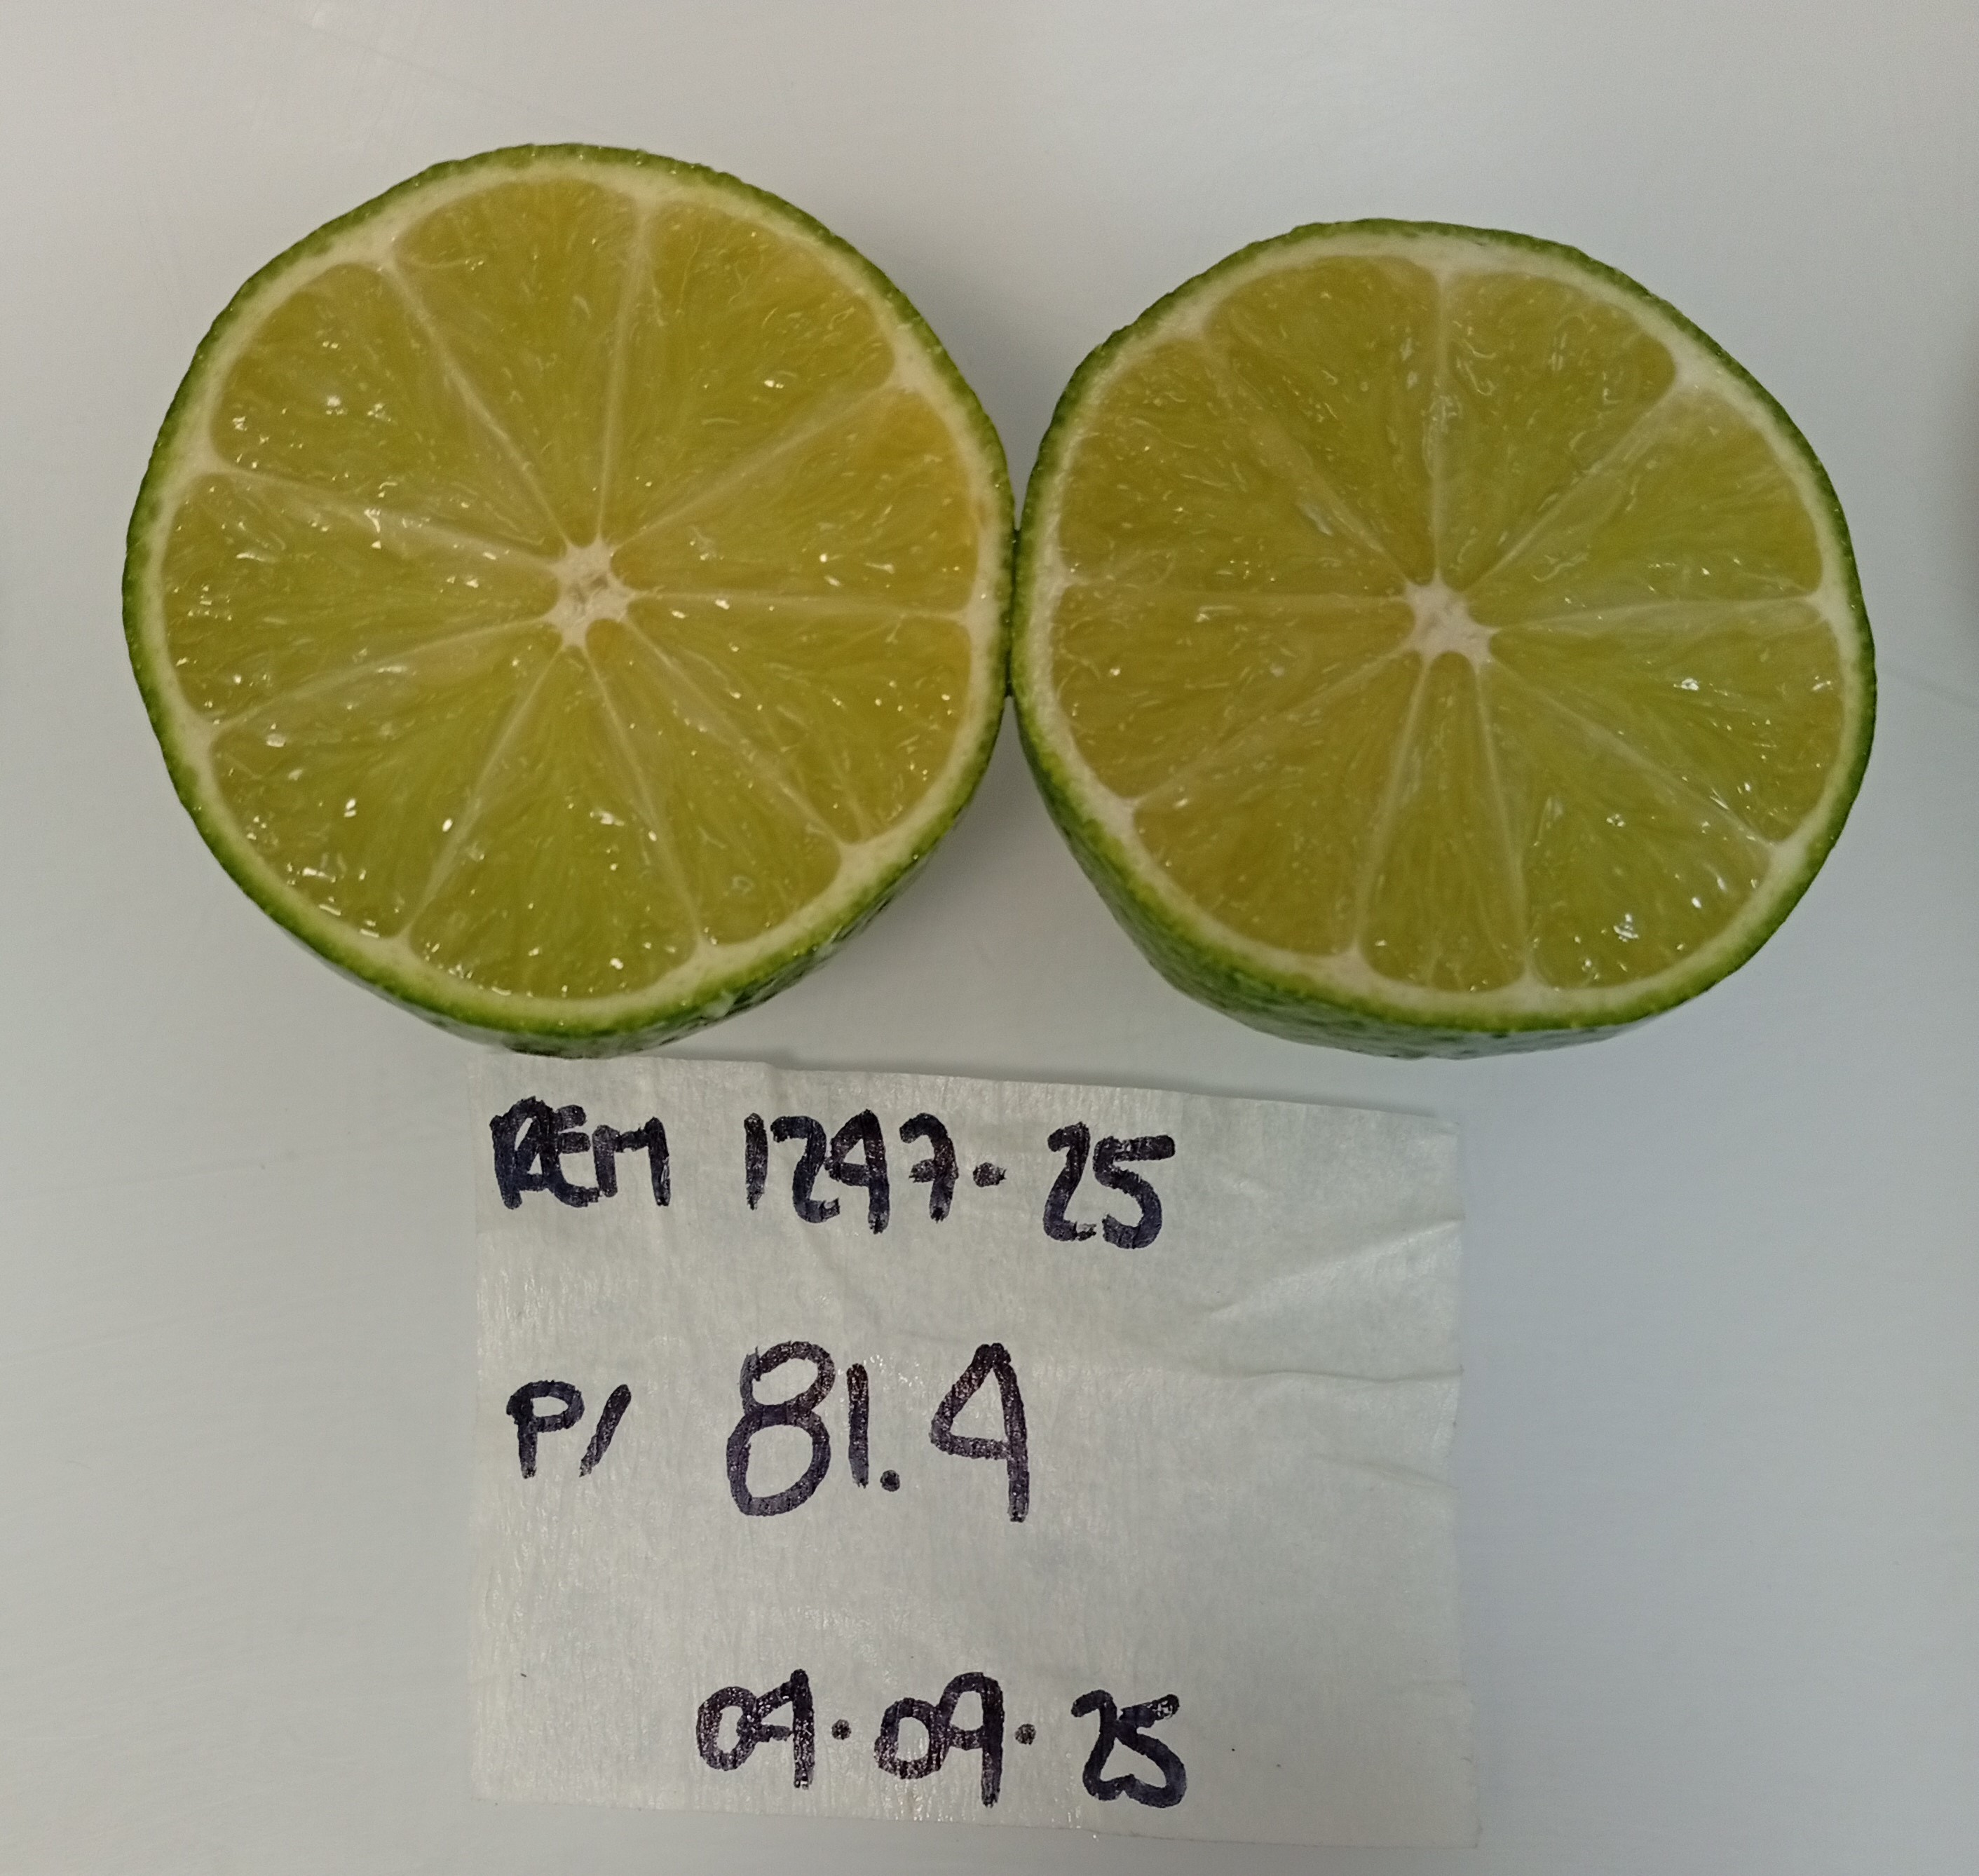 REM 1247. 25
P/ 81.4
04.09.25